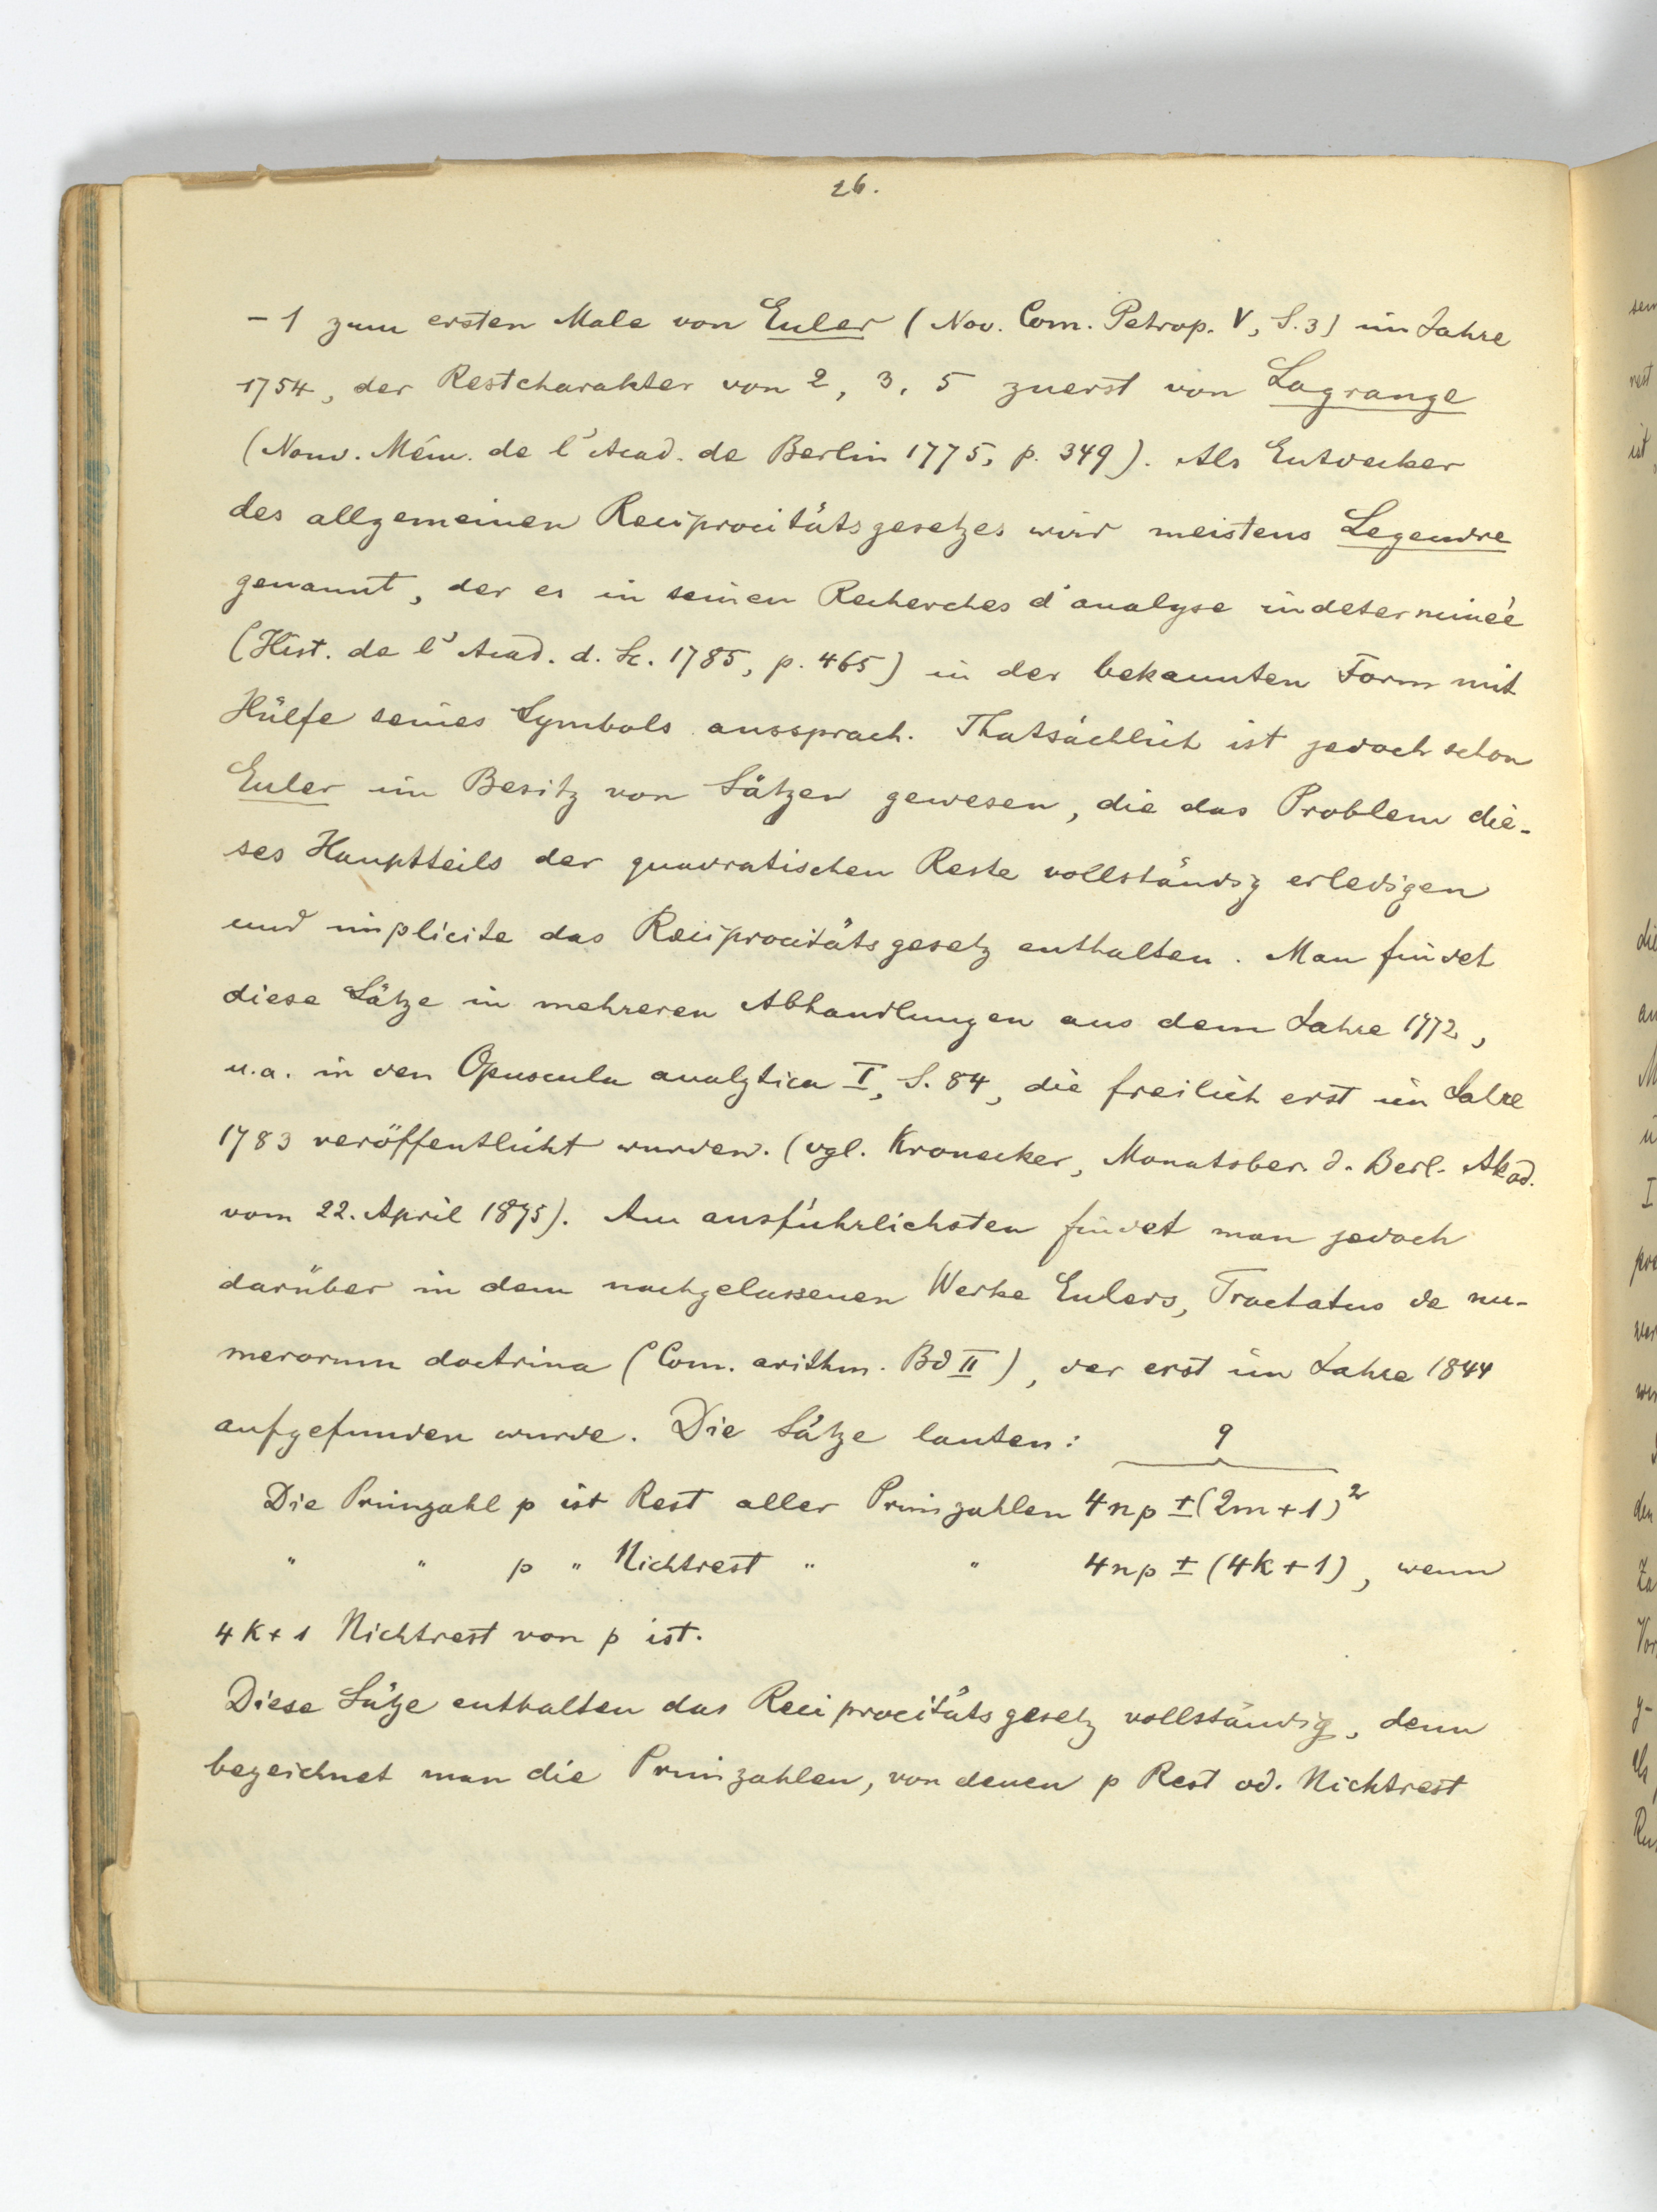 26.
– 1 zum ersten Male von Euler (Nov. Com. Petrop. V, S. 3) im Jahre
1754, der Restcharakter von 2, 3, 5 zuerst von Lagrange
(Nouv. Mém. de l'Acad. de Berlin 1775, p. 349). Als Entdecker
des allgemeinen Reciprocitätsgesetzes wird meistens Legendre
genannt, der es in seinen Recherches d'analyse indeterminée
(Hist. de l'Acad. d. Sc. 1785, p. 465) in der bekannten Form mit
Hülfe seines Symbols aussprach. Thatsächlich ist jedoch schon
Euler im Besitz von Sätzen gewesen, die das Problem die-
ses Hauptteils der quadratischen Reste vollständig erledigen
und implicite das Reciprocitätsgesetz enthalten. Man findet
diese Sätze in mehreren Abhandlungen aus dem Jahre 1772,
u.a. in den Opuscula analytica I, S. 84, die freilich erst im Jahre
1783 veröffentlicht wurden. (vgl. Kronecker, Monatsber. d. Berl. Akad.
vom 22. April 1875). Am ausführlichsten findet man jedoch
darüber in dem nachgelassenen Werke Eulers, Tractatus de nu-
merorum doctrina (Com. arithm. Bd II), der erst im Jahre 1844
aufgefunden wurde. Die Sätze lauten:
q
Die Primzahl p ist Rest aller Primzahlen 4np ± (2m+1)²
" " p " Nichtrest " " 4np ± (4k+1), wenn
4k+1 Nichtrest von p ist.
Diese Sätze enthalten das Reciprocitätsgesetz vollständig, denn
bezeichnet man die Primzahlen, von denen p Rest od. Nichtrest